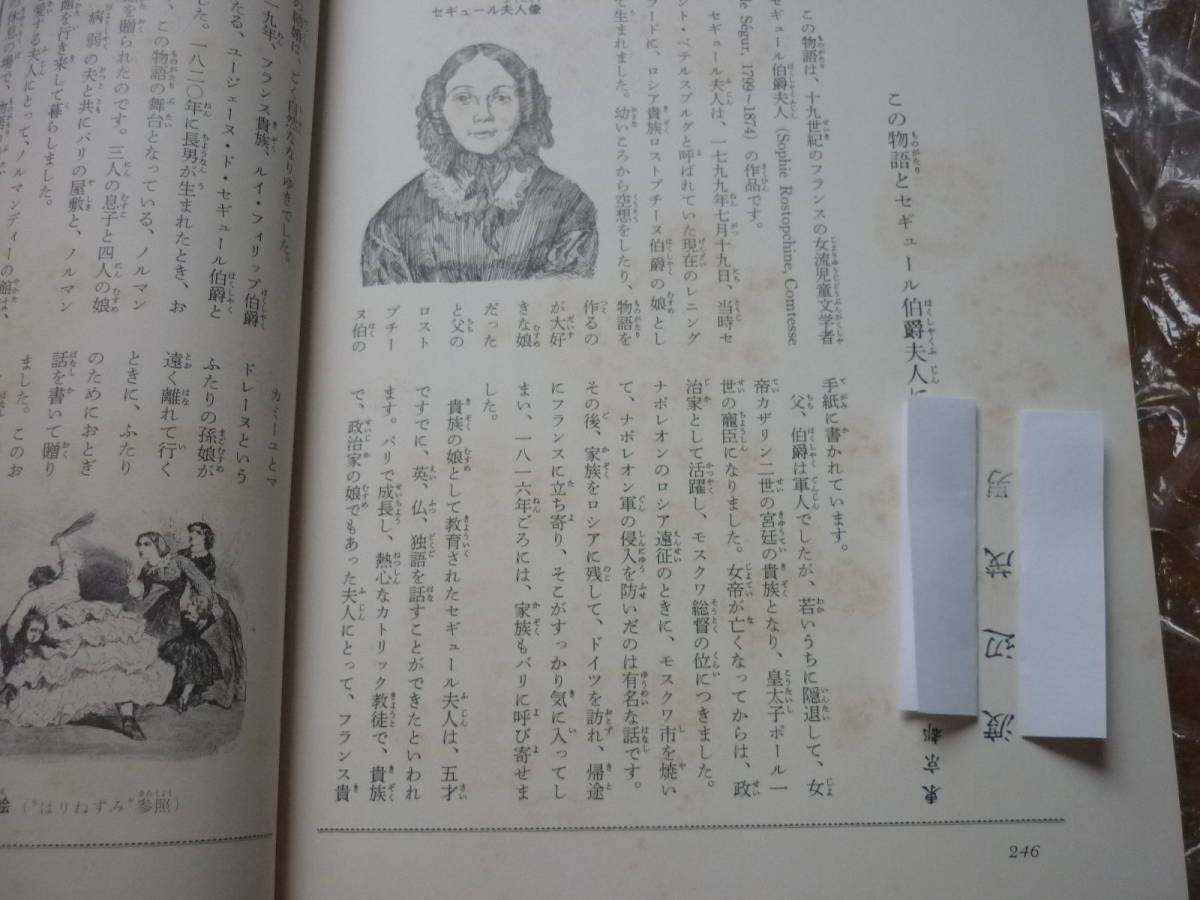 この物語とセギュール伯爵夫人に
この物語は、十九世紀のフランスの女流児童文学者
セギュール伯爵夫人（Sophie Rostopchine, Comtesse
de Ségur, 1799～1874）の作品です。
セギュール夫人は、一七九九年七月十九日、当時セ
ント・ペテルスブルグと呼ばれていた現在のレニング
ラードに、ロシア貴族ロストプチーヌ伯爵の娘とし
て生まれました。幼いころから空想をしたり、物語を
作るの
が大好
きな娘
だった
と父の
ロスト
プチー
ヌ伯の
セギュール夫人像
手紙に書かれています。
父、伯爵は軍人でしたが、若いうちに隠退して、女
帝カザリン二世の宮廷の貴族となり、皇太子ポール一
世の寵臣になりました。女帝が亡くなってからは、政
治家として活躍し、モスクワ総督の位につきました。
ナポレオンのロシア遠征のときに、モスクワ市を焼い
て、ナポレオン軍の侵入を防いだのは有名な話です。
その後、家族をロシアに残して、ドイツを訪れ、帰途
にフランスに立ち寄り、そこがすっかり気に入ってし
まい、一八一六年ごろには、家族もパリに呼び寄せま
した。
貴族の娘として教育されたセギュール夫人は、五才
ですでに、英、仏、独語を話すことができたといわれ
ます。パリで成長し、熱心なカトリック教徒で、貴族
で、政治家の娘でもあった夫人にとって、フランス貴
246
東京都
渡辺茂男
の結婚は、ごく自然ななりゆきでした。
一九年、フランス貴族、ルイ・フィリップ伯爵
たる、ユージェーヌ・ド・セギュール伯爵と
した。一八二〇年に長男が生まれたとき、お
、この物語の舞台となっている、ノルマン
を贈られたのです。三人の息子と四人の娘
病弱の夫と共にパリの屋敷と、ノルマン
館を行き来して暮らしました。
愛する夫人にとって、ノルマンディーの館は、
休息の場で、
カミーユとマ
ドレーヌという
ふたりの孫娘が
遠く離れて行く
ときに、ふたり
のためにおとぎ
話を書いて贈り
ました。このお
絵（“はりねずみ”参照）